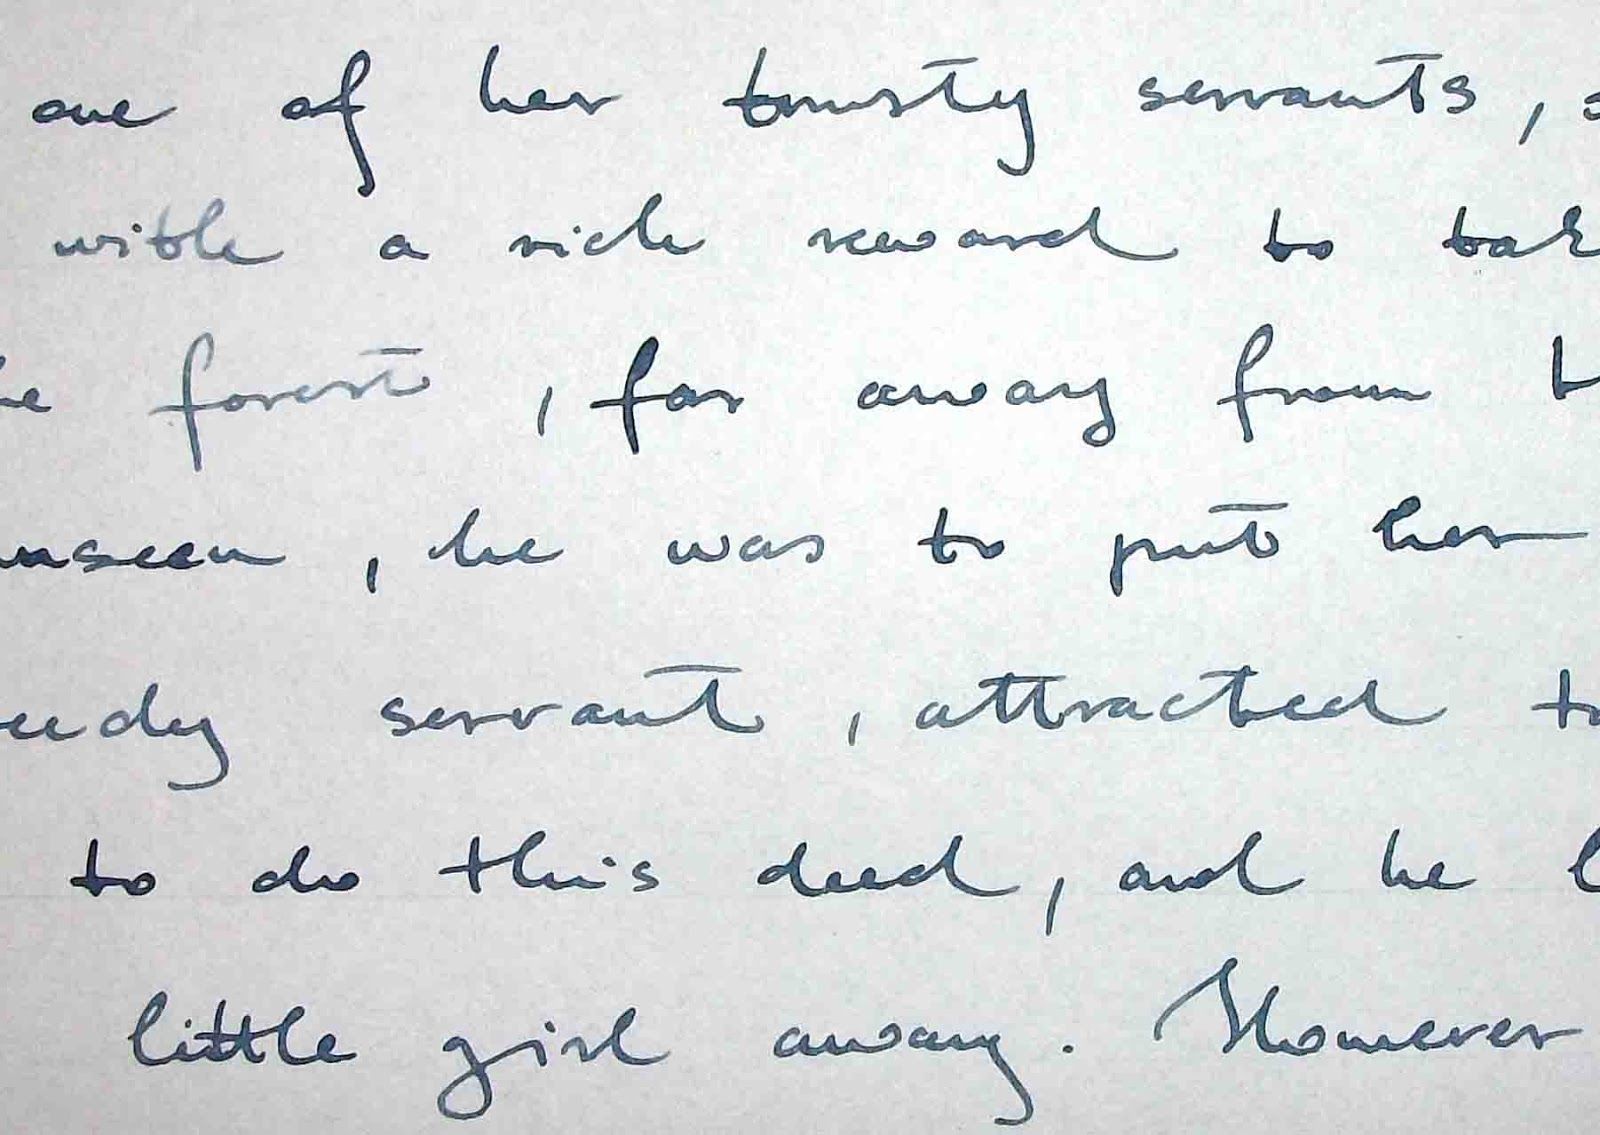 one of her trusty servants,
with a rich reward to tak
he forest, far away from t
unseen, he was to put her
eedy servant, attracted to
to do this deed, and he l
little girl away. However